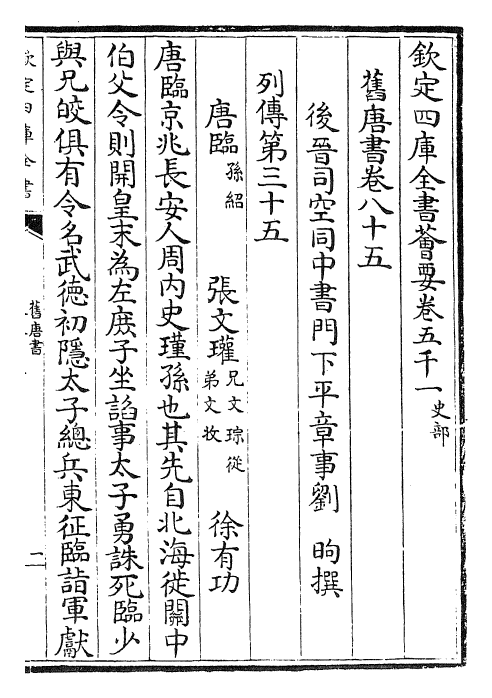 欽定四庫全書薈要卷五千一 史部
舊唐書卷八十五
後晉司空同中書門下平章事劉 昫撰
列傳第三十五
唐臨 孫紹 張文瓘 兄文琮從弟文收 徐有功
唐臨京兆長安人周內史瑾孫也其先自北海徙關中
伯父令則開皇末為左庶子坐諂事太子勇誅死臨少
與兄皎俱有令名武德初隱太子總兵東征臨詣軍獻
欽定四庫全書
舊唐書